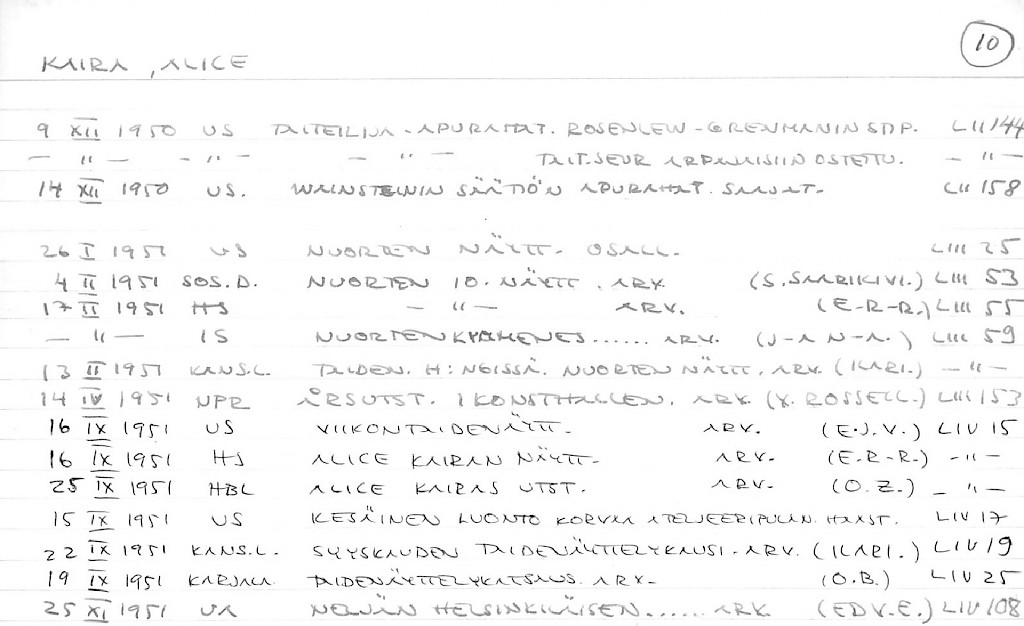 10
KAIRA, ALICE
9 XII 1950 US TAITEILIJA-APURAHAT. ROSENLEW-GRENMANIN STIP. LII 144
— " — — " — — " — TAIT.SEUR ARPAJAISIIN OSTETTU. — " —
14 XII 1950 US. WAINSTEININ SÄÄTIÖN APURAHAT. SAAJAT. LII 158
26 I 1951 US NUORTEN NÄYTT. OSALL. LIII 25
4 II 1951 SOS.D. NUORTEN 10. NÄYTT. ARV. (S.SAARIKIVI.) LIII 53
17 II 1951 HS — " — ARV. (E-R-R.) LIII 55
— " — IS NUORTEN KYMMENES...... ARV. (J-A N-A.) LIII 59
13 II 1951 KANS.L. TAIDEN. H:NGISSÄ. NUORTEN NÄYTT. ARV. (ILARI.) — " —
14 IV 1951 NPR ÅRSUTST. I KONSTHALLEN. ARV. (Y. ROSSELL.) LIII 153
16 IX 1951 US VIIKON TAIDENÄYTT. ARV. (E.J.V.) LIV 15
16 IX 1951 HS ALICE KAIRAN NÄYTT. ARV. (E-R-R.) — " —
25 IX 1951 HBL ALICE KAIRAS UTST. ARV. (O.Z.) — " —
15 IX 1951 US KESÄINEN LUONTO KORVAA ATELJEERIPULAN. HAAST. LIV 17
22 IX 1951 KANS.L. SYYSKAUDEN TAIDENÄYTTELYKAUSI. ARV. (ILARI.) LIV 19
19 IX 1951 KARJALA. TAIDENÄYTTELYKATSAUS. ARV. (O.B.) LIV 25
25 XI 1951 VA NELJÄN HELSINKILÄISEN...... ARV. (ED V.E.) LIV 108